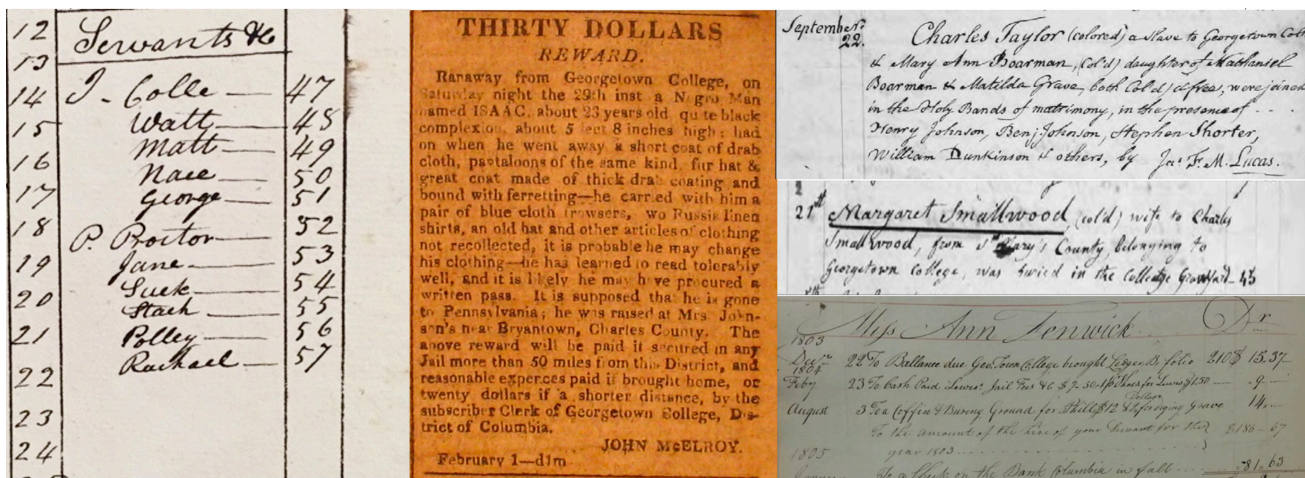 12
13
14
15
16
17
18
19
20
21
22
23
24
Servants &c
J. Colle — 47
Watt — 48
Matt — 49
Nace — 50
George — 51
P. Proctor — 52
Jane — 53
Suck — 54
Stach — 55
Polley — 56
Rachael — 57
THIRTY DOLLARS
REWARD.
Ranaway from Georgetown College, on
Saturday night the 29th inst a Negro Man
named ISAAC, about 23 years old, quite black
complexion, about 5 feet 8 inches high; had
on when he went away a short coat of drab
cloth, pantaloons of the same kind, fur hat &
great coat made of thick drab coating and
bound with ferretting—he carried with him a
pair of blue cloth trowsers, two Russia linen
shirts, an old hat and other articles of clothing
not recollected, it is probable he may change
his clothing—he has learned to read tolerably
well, and it is likely he may have procured a
written pass. It is supposed that he is gone
to Pennsylvania; he was raised at Mrs. John-
son's near Bryantown, Charles County. The
above reward will be paid if secured in any
Jail more than 50 miles from this District, and
reasonable expences paid if brought home, or
twenty dollars if a shorter distance, by the
subscriber Clerk of Georgetown College, Dis-
trict of Columbia.
JOHN McELROY.
February 1—d1m
September
22. Charles Taylor (colored) a slave to Georgetown Col
& Mary Ann Boarman, (col'd) daughter of Nathaniel
Boarman & Matilda Grave, both Col'd & free, were joined
in the Holy Bands of matrimony, in the presence of
Henry Johnson, Benj. Johnson, Stephen Shorter,
William Dunkinson & others, by Jas. F. M. Lucas.
21st Margaret Smallwood, (col'd) wife to Charles
Smallwood, from St Mary's County, belonging to
Georgetown College, was buried in the College Grave Yard — 45
Miss Ann Fenwick Dr
1803
Decr 22 To Ballance due Geo. Town College brought Leger B. folio 210 $ 15.37
1804
Feby 23 To Cash Paid Lewis's Jail Fees &c $7.50 Shoes for Lewis $1.50 — 9 —
August 3 To a Coffin & Buring Ground for Phill $12 & College foreging Grave 14 —
To the amount of the hire of your Servant for the
year 1803 $186-67
1805
To a Check on the Bank Columbia in full 81.63